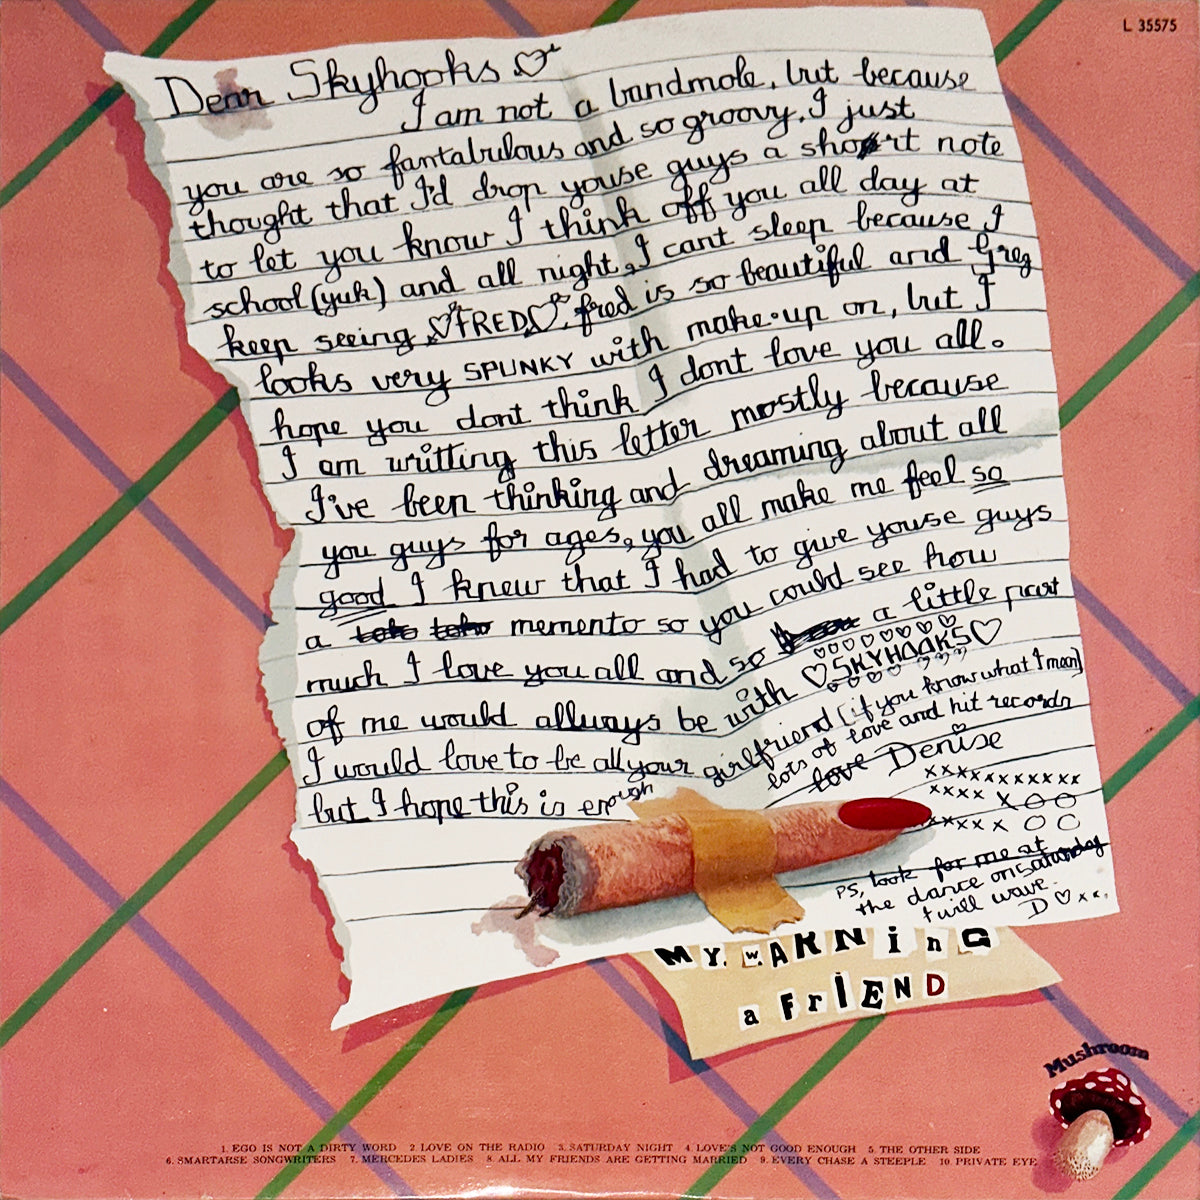 L 35575
Dear Skyhooks
I am not a bandmole, but because
you are so fantabulous and so groovy. I just
thought that I'd drop youse guys a short note
to let you know I think off you all day at
school (yuk) and all night, I cant sleep because I
keep seeing FRED. fred is so beautiful and Greg
looks very SPUNKY with make-up on, but I
hope you dont think I dont love you all.
I am writting this letter mostly because
I've been thinking and dreaming about all
you guys for ages, you all make me feel so
good I knew that I had to give youse guys
a memento so you could see how
much I love you all and so a little part
of me would allways be with SKYHOOKS
I would love to be all your girlfriend (if you know what I mean)
but I hope this is enough
lots of love and hit records
love Denise
xxxxxxxxxxx
xxxx X O O
xxxx x O O
PS, look for me at
the dance on saturday
I will wave.
D xx.
MY. wARNinG
a FrIEND
Mushroom
1. EGO IS NOT A DIRTY WORD 2. LOVE ON THE RADIO 3. SATURDAY NIGHT 4. LOVE'S NOT GOOD ENOUGH 5. THE OTHER SIDE
6. SMARTARSE SONGWRITERS 7. MERCEDES LADIES 8. ALL MY FRIENDS ARE GETTING MARRIED 9. EVERY CHASE A STEEPLE 10. PRIVATE EYE